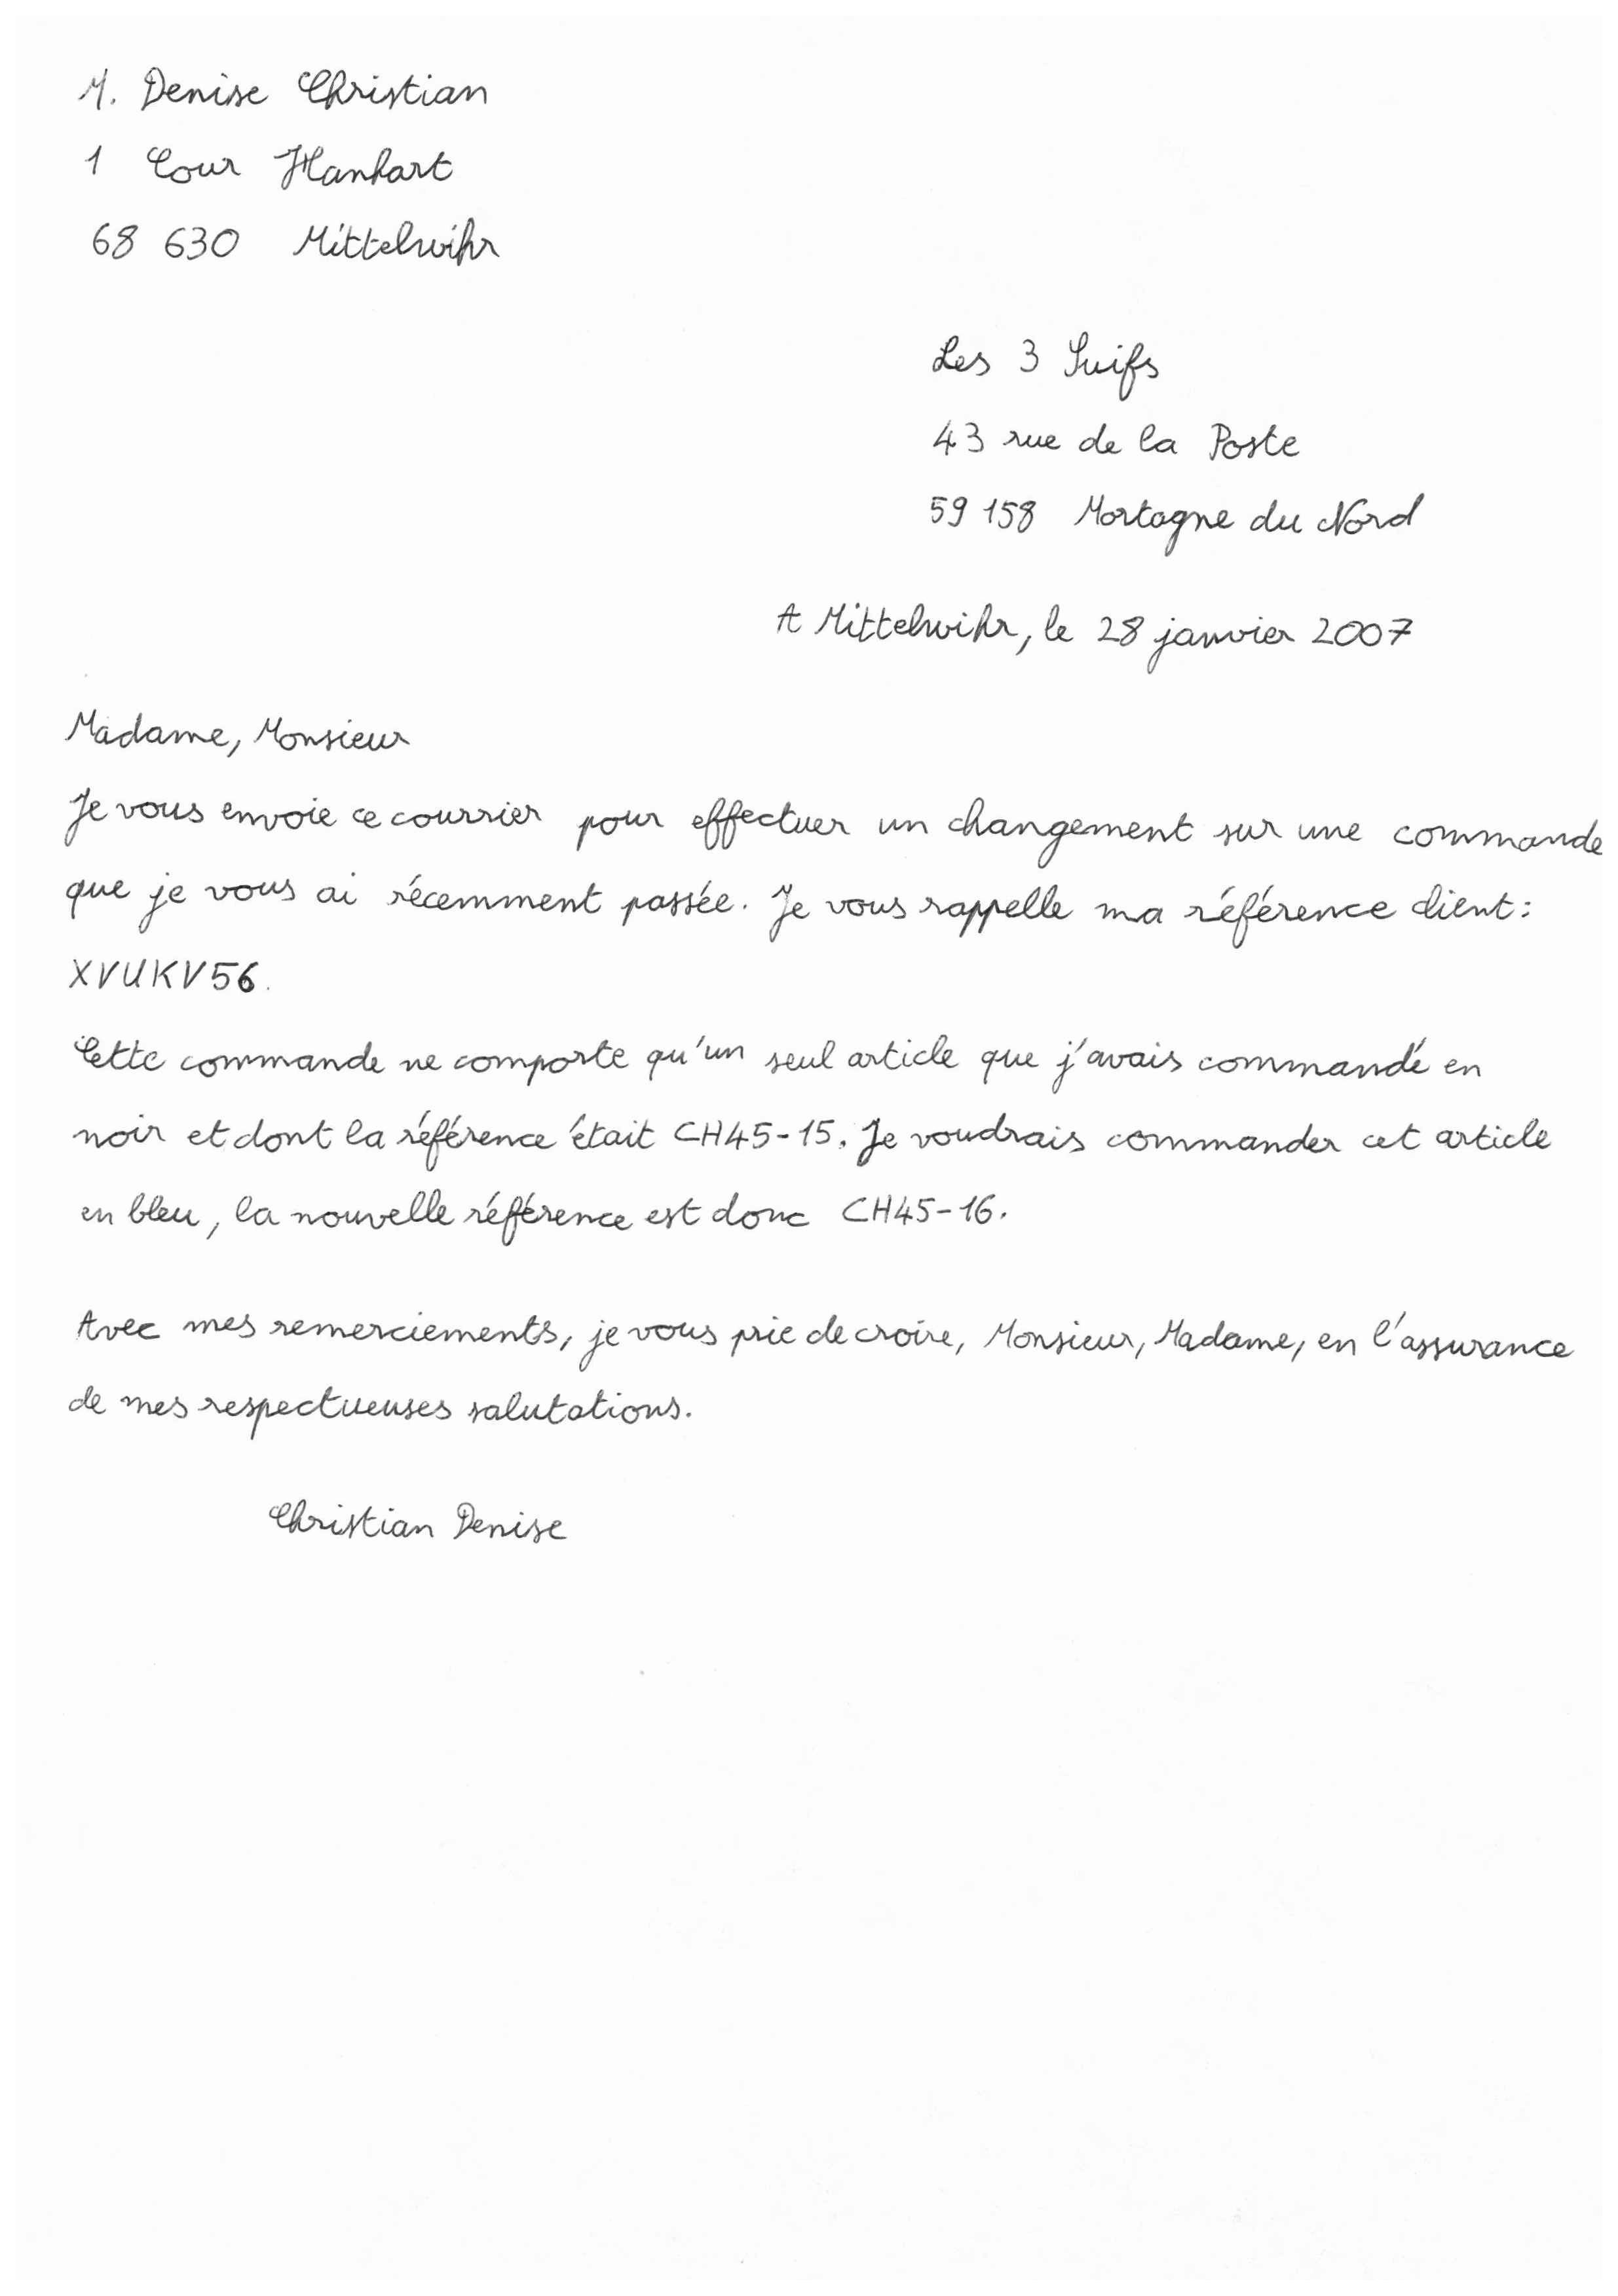 M. Denise Christian
1 Cour Hanhart
68 630 Mittelwihr
Les 3 Suifs
43 rue de la Poste
59 158 Mortagne du Nord
A Mittelwihr, le 28 janvier 2007
Madame, Monsieur
Je vous envoie ce courrier pour effectuer un changement sur une commande
que je vous ai récemment passée. Je vous rappelle ma référence client :
XVUKV56.
Cette commande ne comporte qu'un seul article que j'avais commandé en
noir et dont la référence était CH45-15. Je voudrais commander cet article
en bleu, la nouvelle référence est donc CH45-16.
Avec mes remerciements, je vous prie de croire, Monsieur, Madame, en l'assurance
de mes respectueuses salutations.
Christian Denise